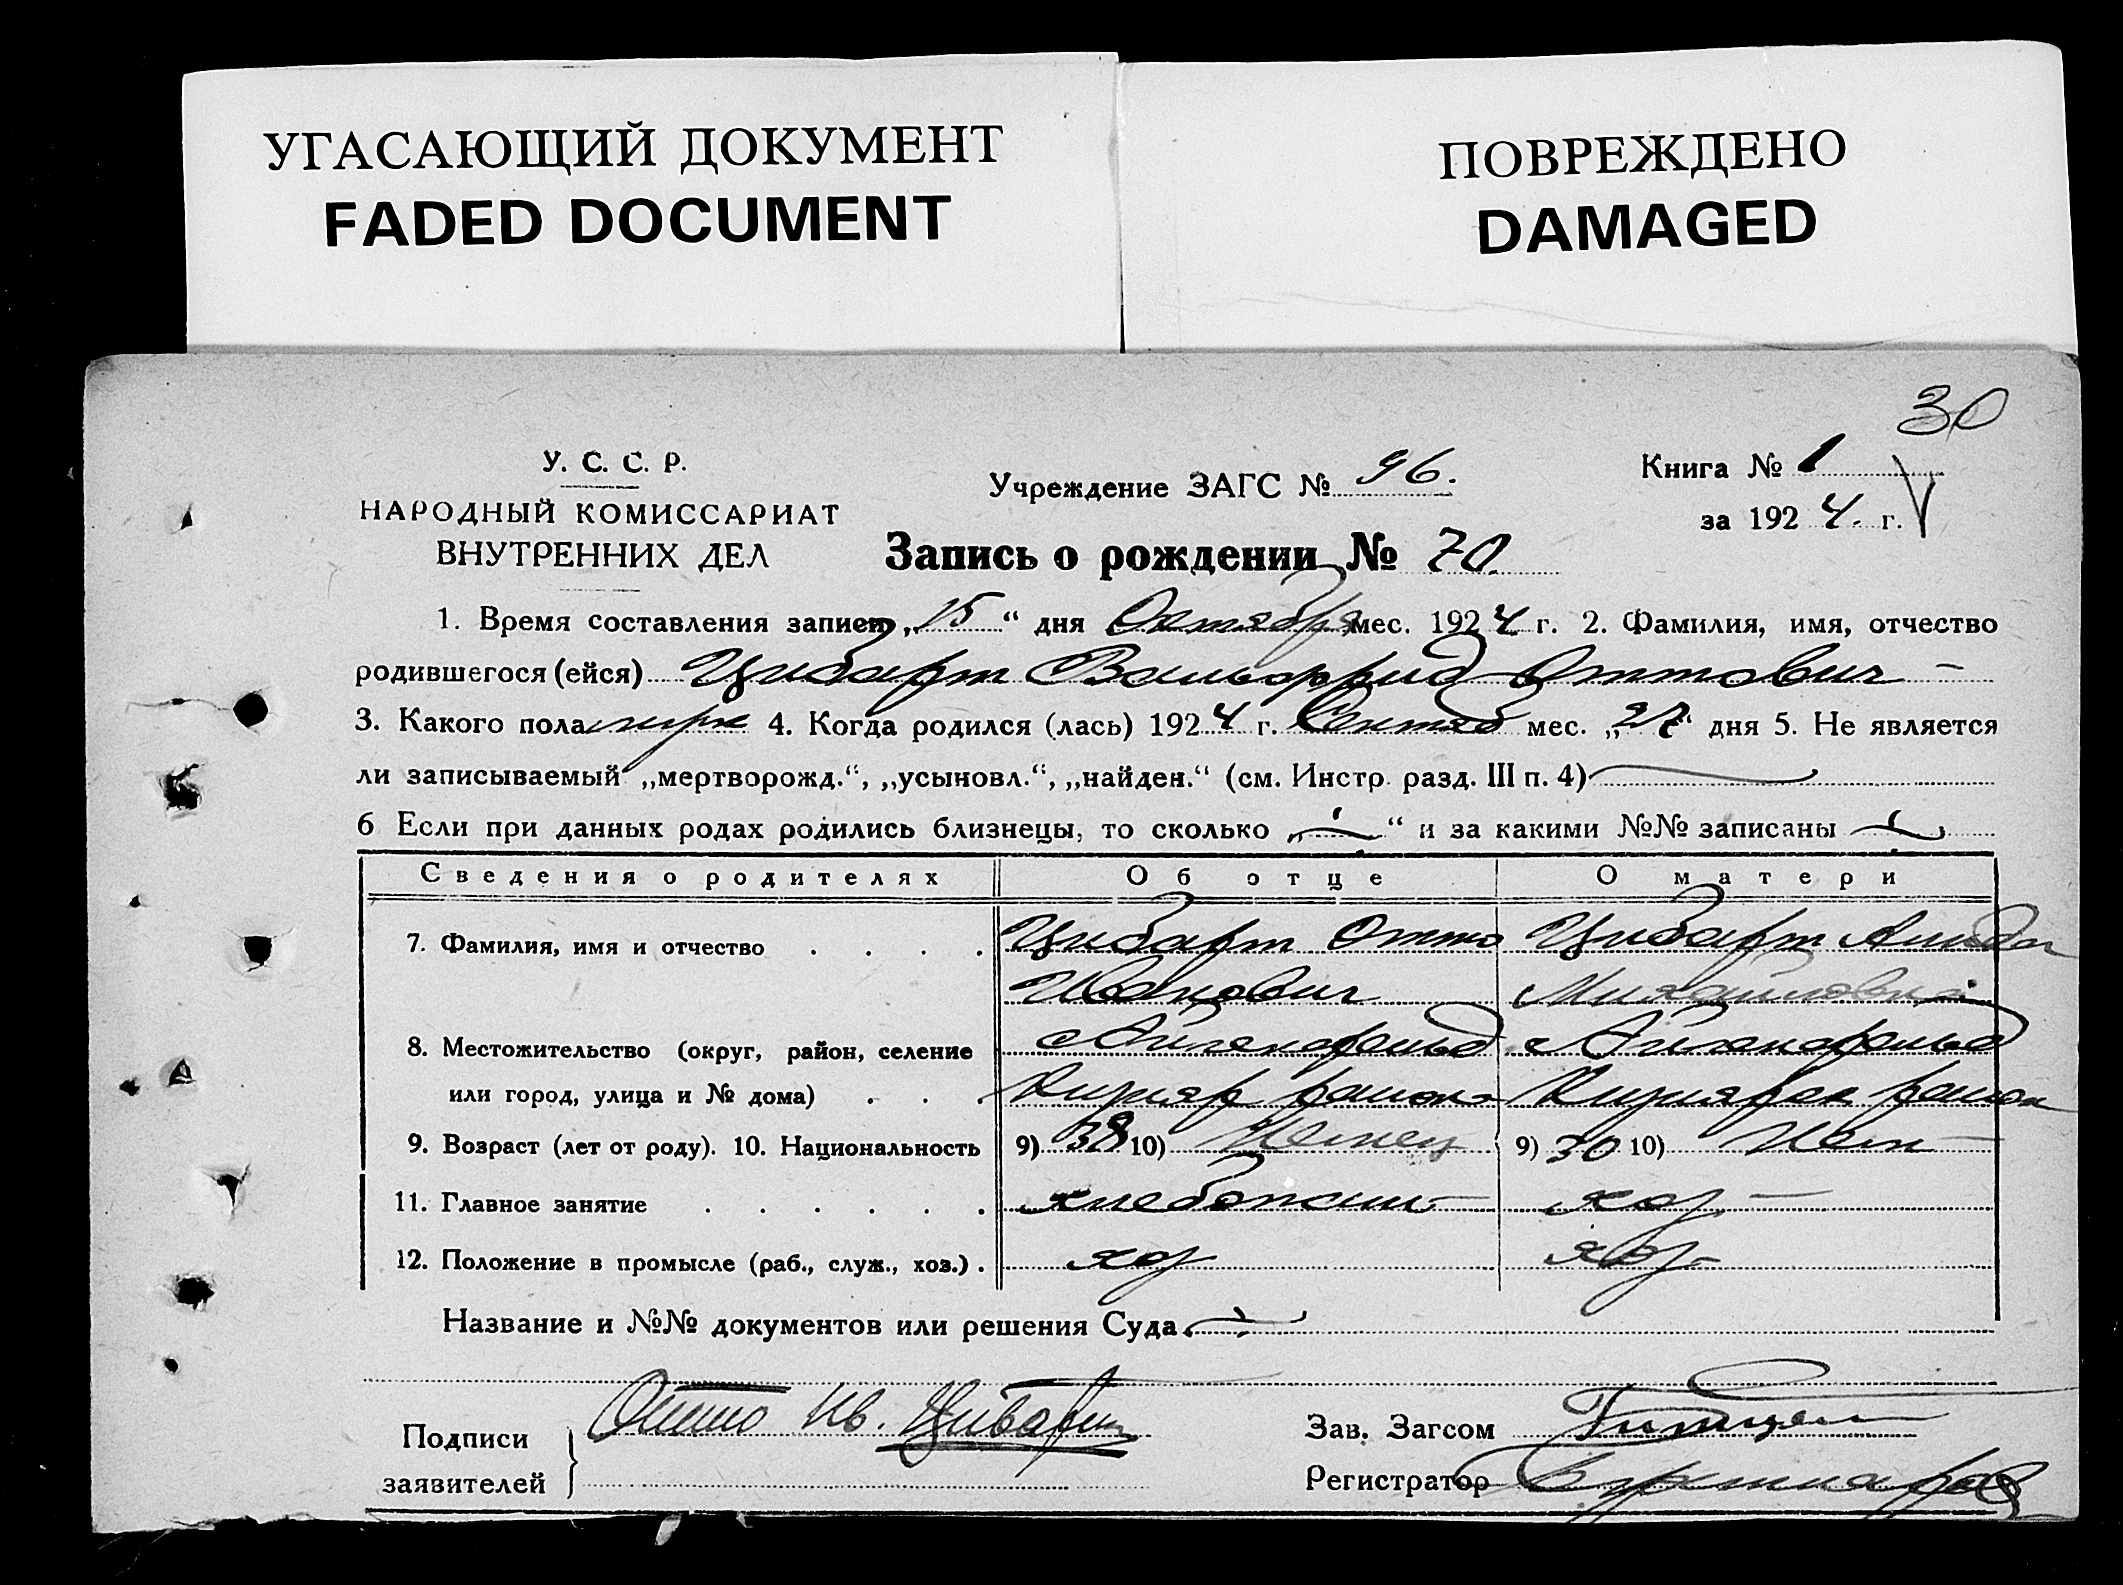 УГАСАЮЩИЙ ДОКУМЕНТ
FADED DOCUMENT
ПОВРЕЖДЕНО
DAMAGED
30
У. С. С. Р.
НАРОДНЫЙ КОМИССАРИАТ
ВНУТРЕННИХ ДЕЛ
Учреждение ЗАГС № 96.
Книга № 1
за 1924. г.
Запись о рождении № 70.
1. Время составления записи „15“ дня Октября мес. 1924 г. 2. Фамилия, имя, отчество
родившегося (ейся) Цибарт Вальфрид Оттович
3. Какого пола муж 4. Когда родился (лась) 1924 г. Сентяб мес. „27“ дня 5. Не является
ли записываемый „мертворожд.“, „усыновл.“, „найден.“ (см. Инстр. разд. III п. 4)
6 Если при данных родах родились близнецы, то сколько „ “ и за какими №№ записаны
Сведения о родителях Об отце О матери
7. Фамилия, имя и отчество . . . . Цибарт Отто Цибарт
Иванович Михайловна
8. Местожительство (округ, район, селение Айгенфельд Айгенфельд
или город, улица и № дома) . . . район район
9. Возраст (лет от роду). 10. Национальность 9) 38 10) Немец 9) 30 10) Нем
11. Главное занятие . . . . . . хлебопаш хоз
12. Положение в промысле (раб., служ., хоз.) . хоз хоз
Название и №№ документов или решения Суда
Подписи
заявителей
Отто Ив. Цибарт
Зав. Загсом
Регистратор